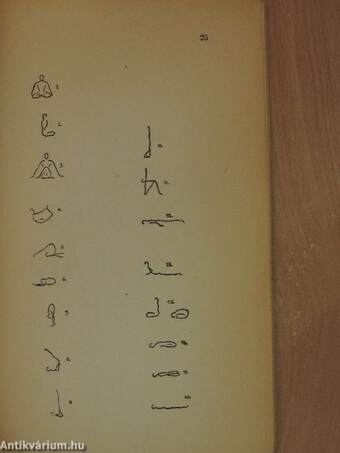 25
1.
2.
3.
4.
5.
6.
7.
8.
9.
10.
11.
12.
13.
Antikvárium.hu